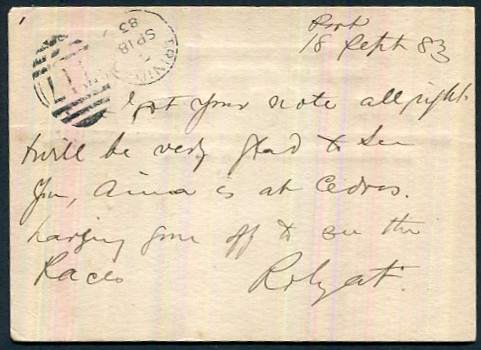 Port
18 Sept 83
TRINIDAD
SP 18
83
I got your note all right
will be very glad to see
you, Anna is at Cedros.
having gone off to see the
Races